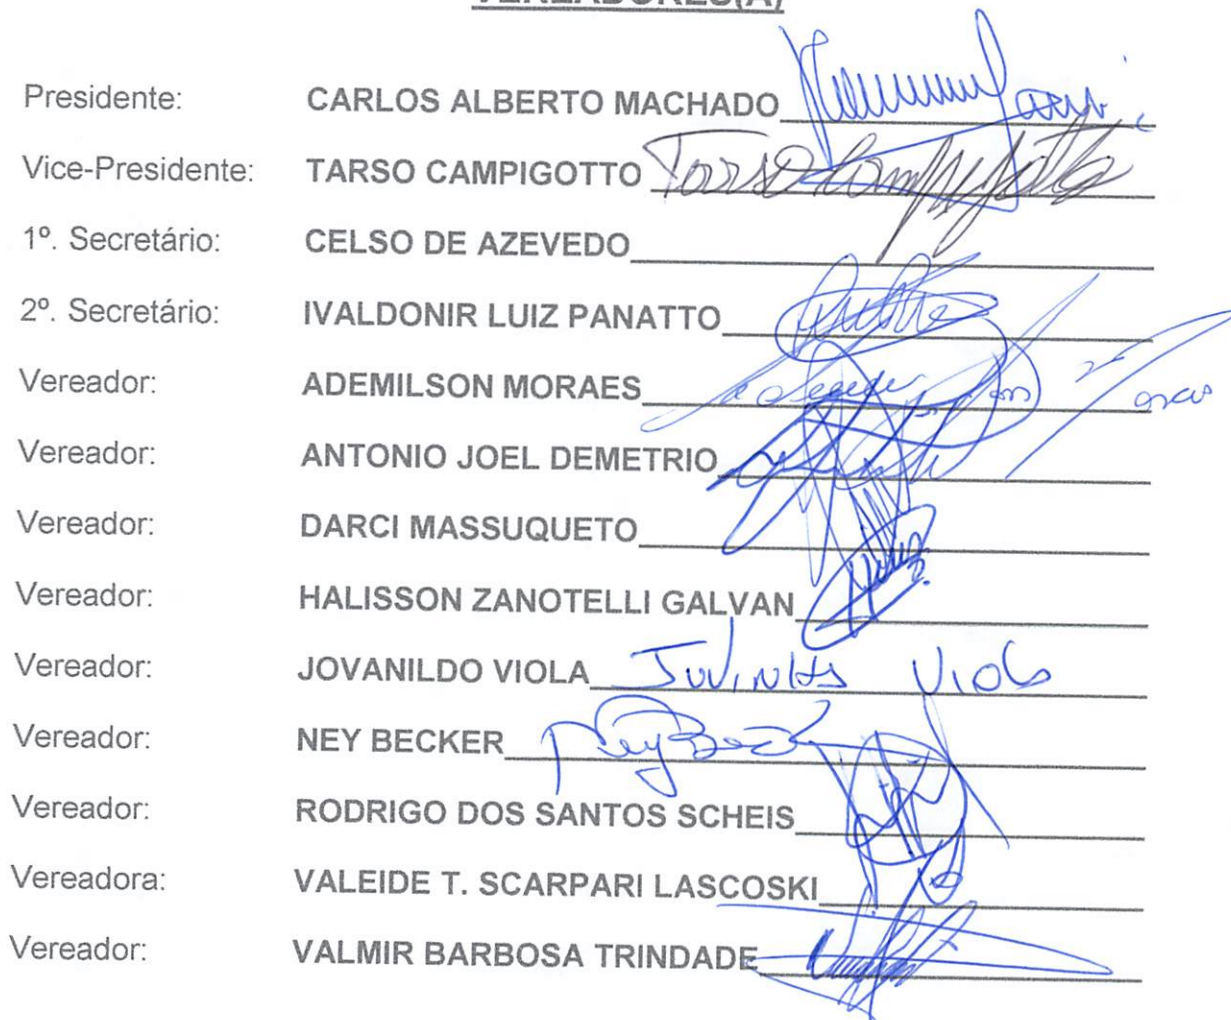 VEREADORES(A)
Presidente: CARLOS ALBERTO MACHADO
Vice-Presidente: TARSO CAMPIGOTTO Tarso Campigotto
1º. Secretário: CELSO DE AZEVEDO
2º. Secretário: IVALDONIR LUIZ PANATTO
Vereador: ADEMILSON MORAES
Vereador: ANTONIO JOEL DEMETRIO
Vereador: DARCI MASSUQUETO
Vereador: HALISSON ZANOTELLI GALVAN
Vereador: JOVANILDO VIOLA Viola
Vereador: NEY BECKER Ney Beck
Vereador: RODRIGO DOS SANTOS SCHEIS
Vereadora: VALEIDE T. SCARPARI LASCOSKI
Vereador: VALMIR BARBOSA TRINDADE